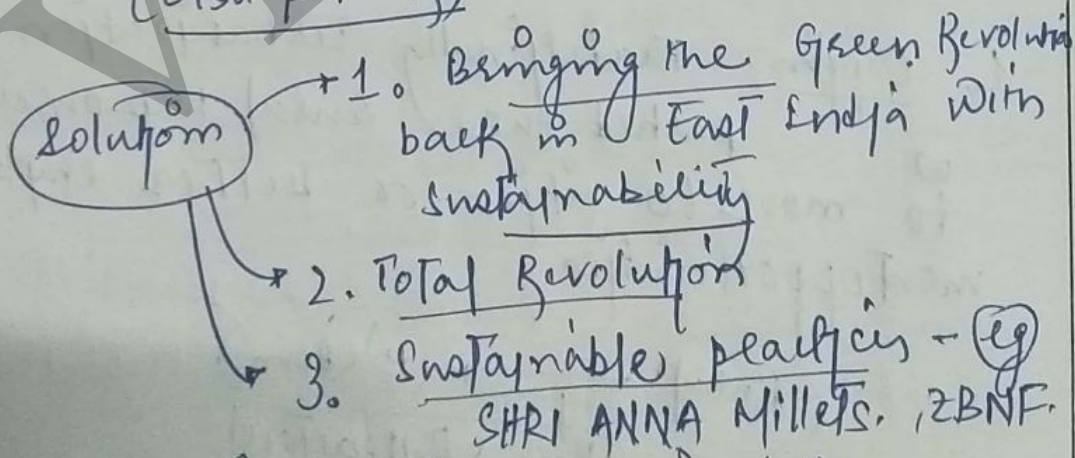 Solution
1. Bringing the Green Revolution
back in East India with
sustainability
2. Total Revolution
3. Sustainable practices - eg
SHRI ANNA Millets. , ZBNF.